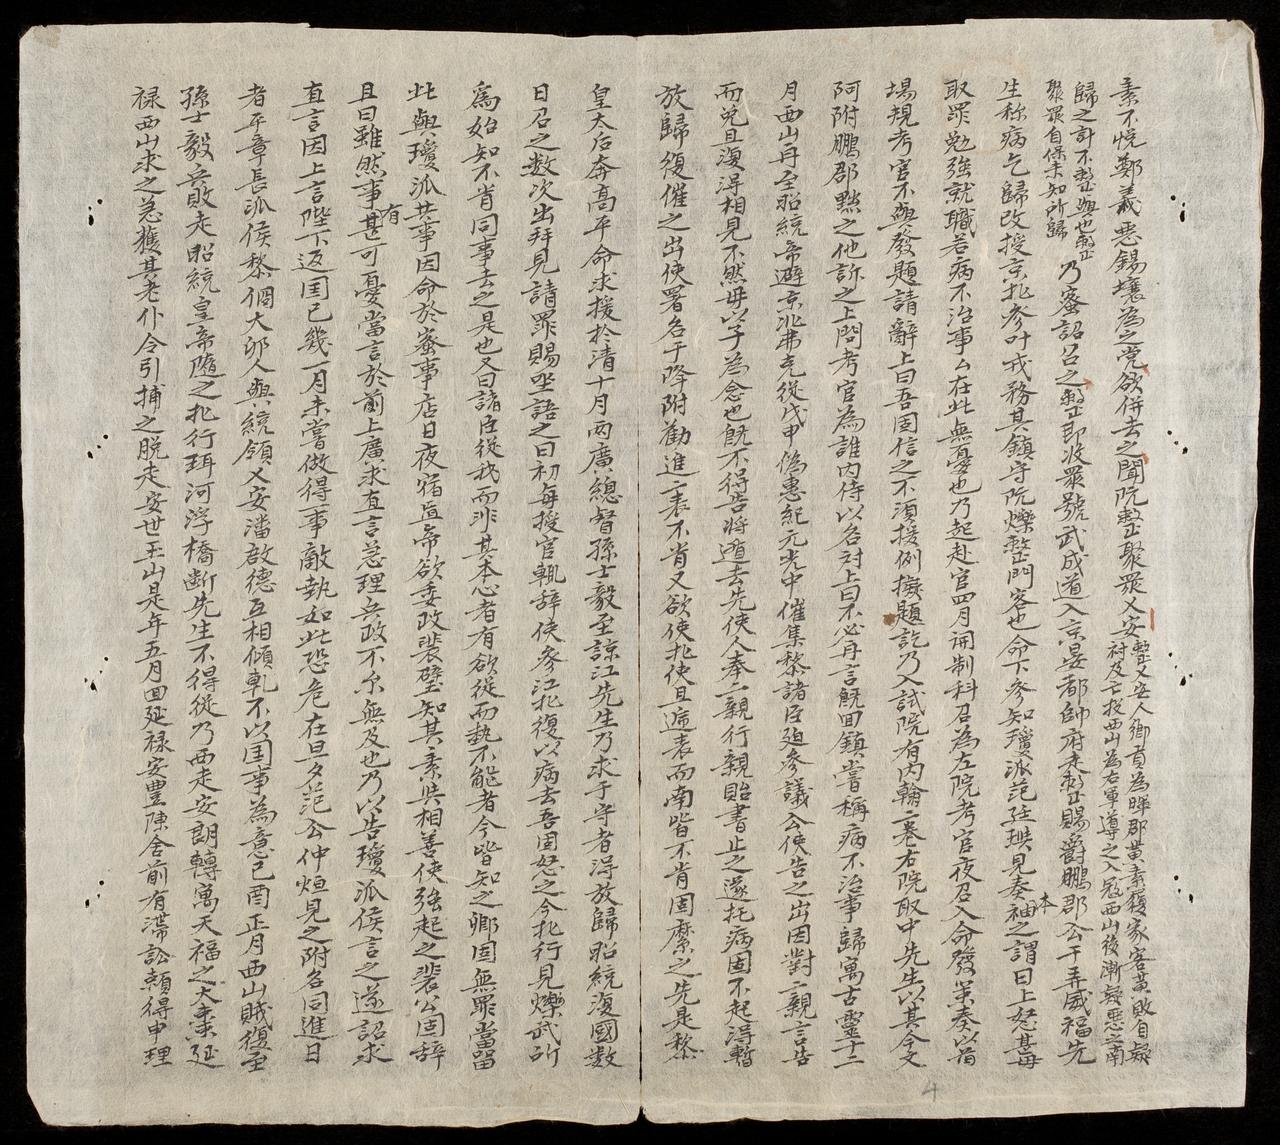 素不悅鄭義忠錫壤為之党欲併去之聞阮整聚眾乂安整乂安人鄉貢為曄郡黃素履家客黃敗自疑
歸之計不整與也整聚眾自保未知所歸乃蜜詔召之整即收眾號武成道入京晏都帥府走整賜爵鵬郡公干弄威福先
生称病乞歸改授京北参叶戎務其鎮守阮爍整門客也命下参知瓊派范廷琠見奏本袖之謂曰上怒甚毋
取罪勉強就職若病不治事公在此無憂也乃起赴官四月開制科召為左院考官夜召入命發策奏以前
場規考官不與發題請辭上曰吾固信之不須援例擬題訖乃入試院有內翰二卷右院取中先生以其今文
阿附鵬郡黜之他訴之上問考官為誰內侍以名对上曰不必再言既回鎮嘗稱病不治事歸寓古靈十二
月西山再至昭統帝避京北弗克從戊申偽惠紀元光中催集黎諸臣廹參議公使告之出因對二親言告
而兊且渡得相見不然毋以子為念也既不得告將遁去先使人奉二親行親貽書止之遂托病固不起得暫
放歸復催之出使署名于降附勸進二表不肯又欲使北使且遞表而南皆不肯固縻之先是黎
皇太后奔高平命求援於清十月両廣總督孫士毅至諒江先生乃求于守者淂放歸昭統復國数
日召之数次出拜見請罪賜坐語之曰初每授官輒辞使參江北復以病去吾固怒之今北行見爍武所
為始知不肯同事去之是也又曰諸臣從我而非其本心者有欲從而勢不能者今皆知之卿固無罪當留
此與瓊派共事因命於蜜事店日夜宿直帝欲委政裴璧知其素與相善使強起之裴公固辞
且曰雖然事甚有可憂當言於前上廣求直言急理兵政不尔無及也乃以告瓊派侯言之遂詔求
直言因上言陛下返国已幾一月未嘗做得一事敵執如此恐危在旦夕范公仲烜見之附名同進日
者平章長派侯黎個大卯人與統領乂安潘啟德互相傾軋不以国事為意己酉正月西山賊復至
孫士毅兵敗走昭統皇帝隨之北行珥河浮橋斷先生不得從乃西走安朗轉寓天福之大棗延
禄西山求之急獲其老仆令引捕之脱走安世玉山是年五月回延禄安豊陳舍前有滯訟頼得申理
4